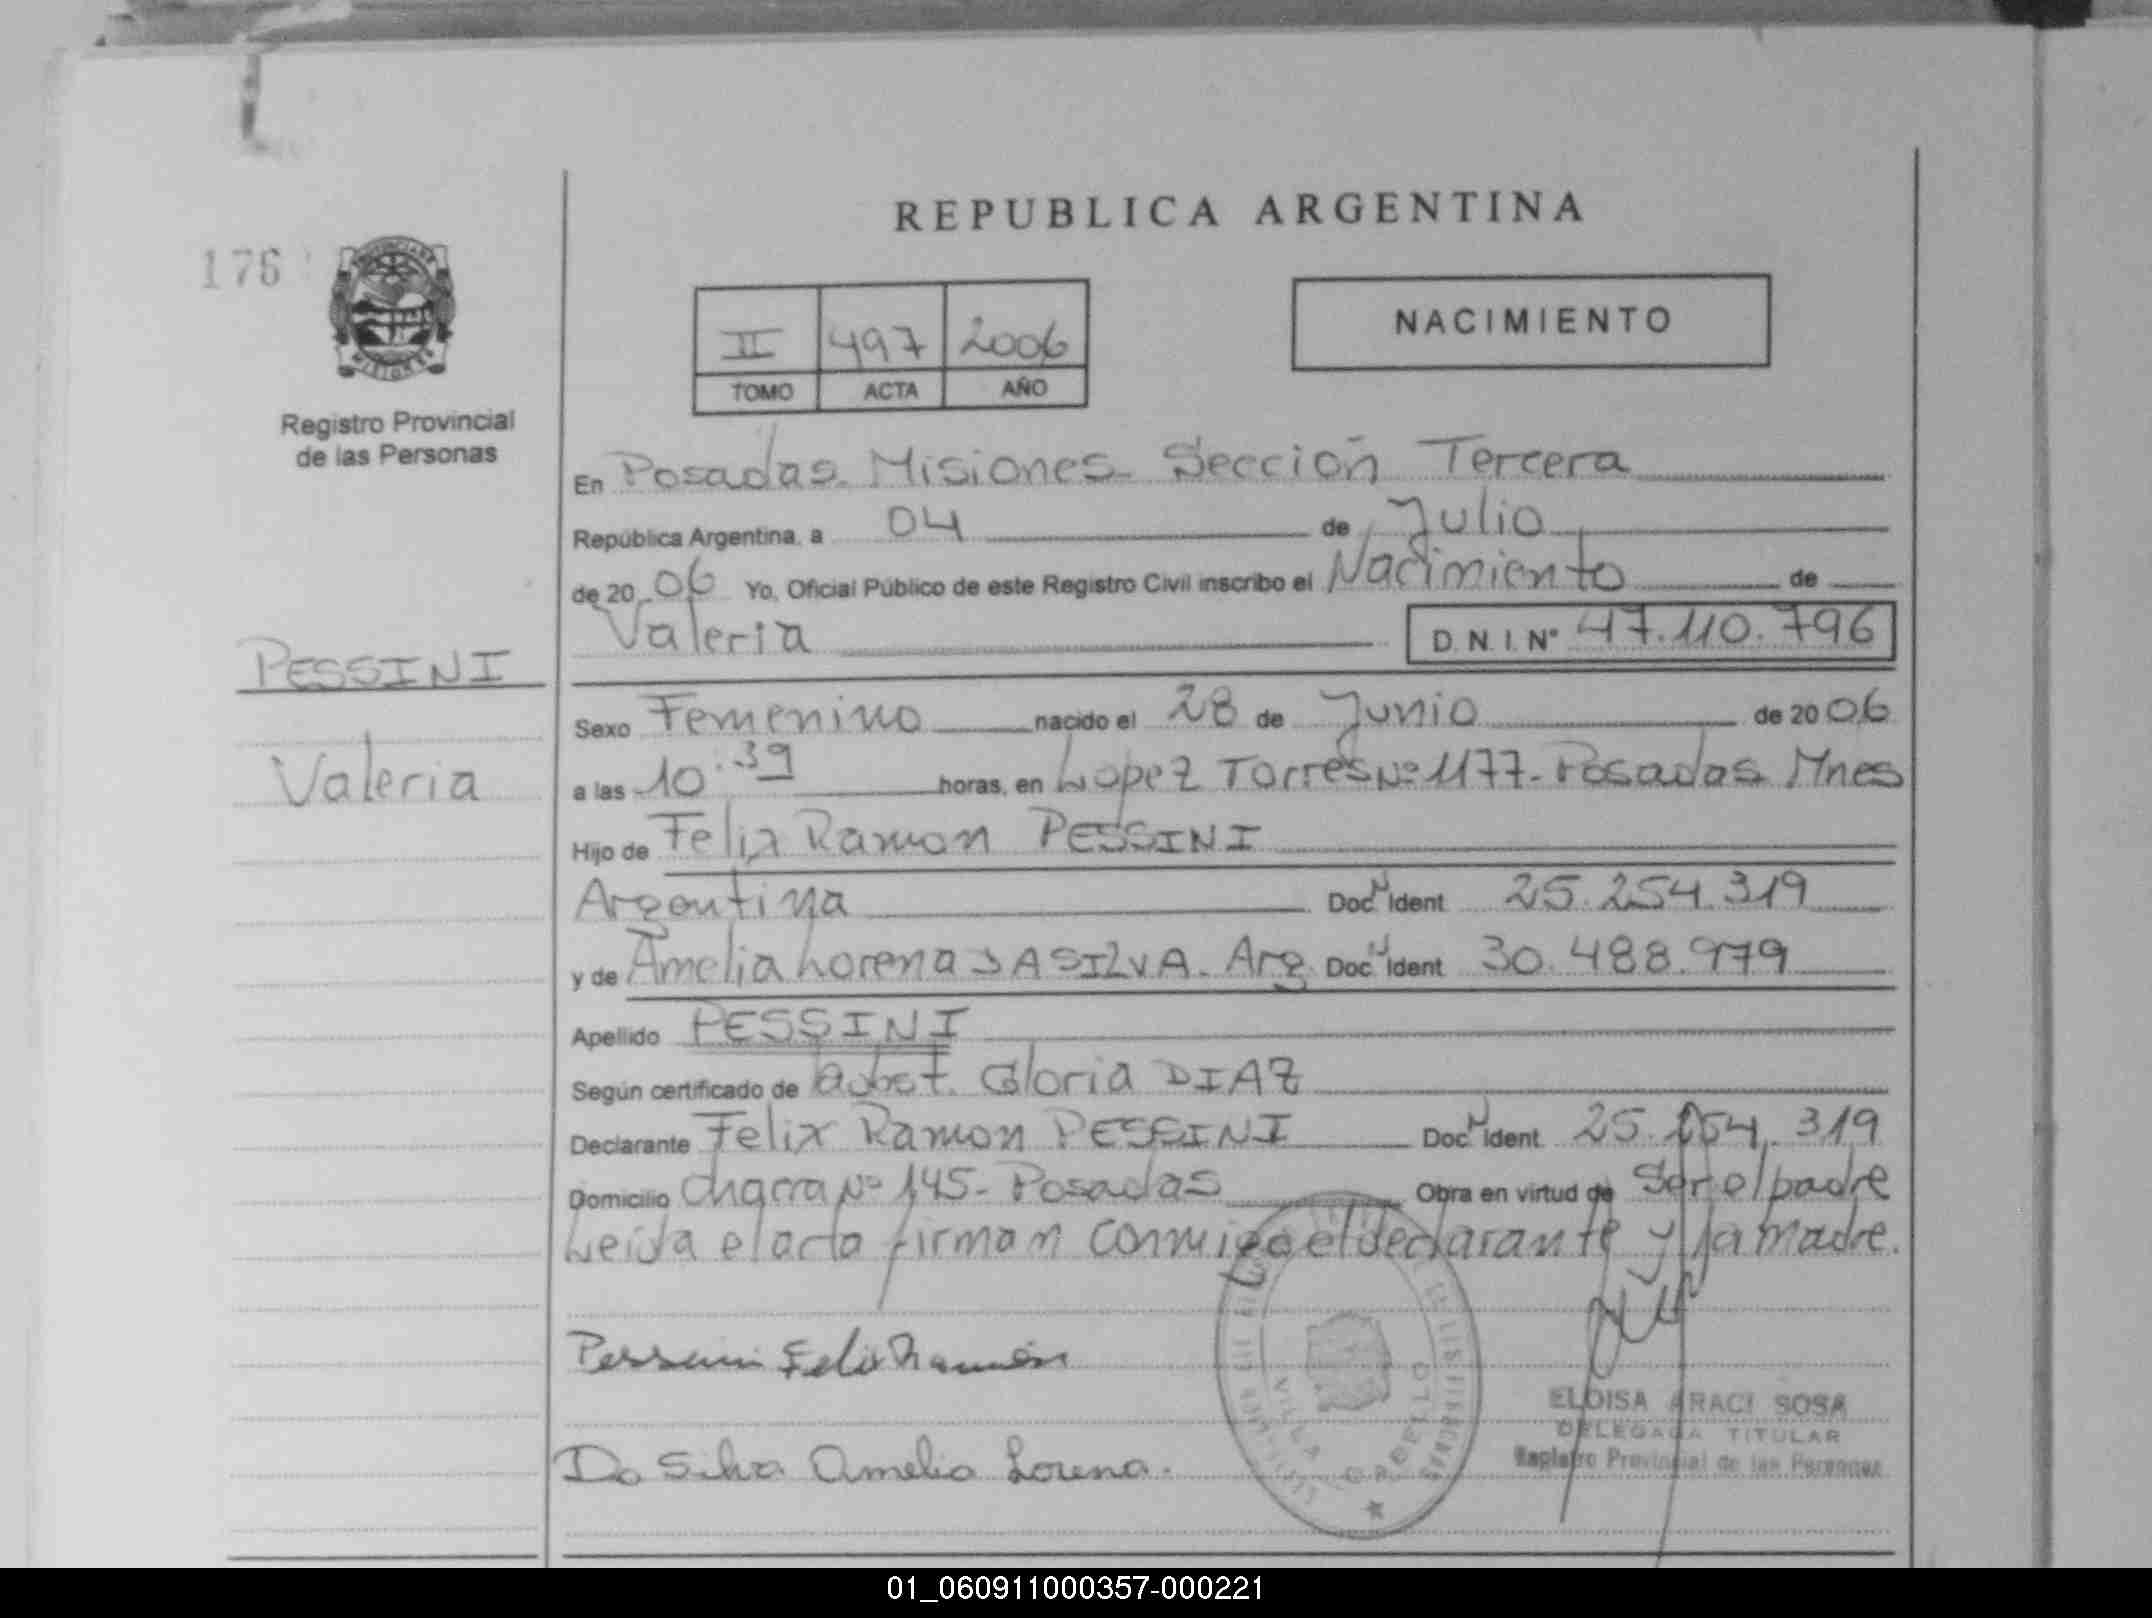 REPUBLICA ARGENTINA
176
PROVINCIA DE
MISIONES
Registro Provincial
de las Personas
II 497 2006
TOMO ACTA AÑO
NACIMIENTO
En Posadas. Misiones. Sección Tercera
República Argentina, a 04 de Julio
de 2006 Yo, Oficial Público de este Registro Civil inscribo el Nacimiento de
Valeria D.N.I.Nº 47.110.796
PESSINI
Valeria
Sexo Femenino nacido el 28 de Junio de 2006
a las 10:39 horas, en Lopez Torres Nº 1177- Posadas Mnes
Hijo de Felix Ramon PESSINI
Argentina Doc. Ident 25.254.319
y de Amelia Lorena DASILVA. Arg. Doc. Ident 30.488.979
Apellido PESSINI
Según certificado de Gloria DIAZ
Declarante Felix Ramon PESSINI Doc. Ident 25.254.319
Domicilio Chacra Nº 145- Posadas Obra en virtud de Ser el padre
Leida el acta firman conmigo el declarante y la madre.
Pessini Felix Ramón
Da Silva Amelia Lorena.
VILLA CABELLO
ELOISA ARACI SOSA
DELEGADA TITULAR
Registro Provincial de las Personas
01_060911000357-000221